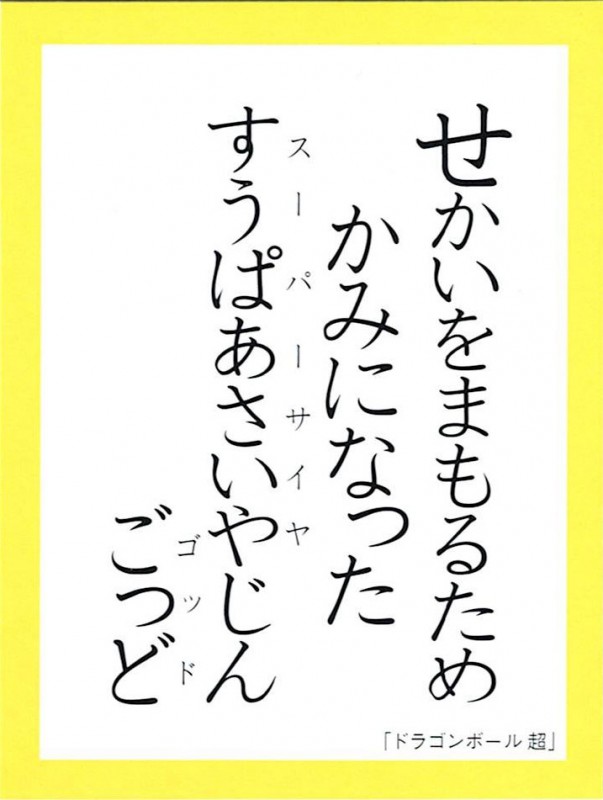 せかいをまもるため
かみになった
すうぱあさいやじん
スーパーサイヤ
ごっど
ゴッド
「ドラゴンボール 超」